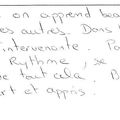 on apprend bea
es autres. Dans
intervenante. Po
Rythme, se
e tout cela. B
rt et appris.